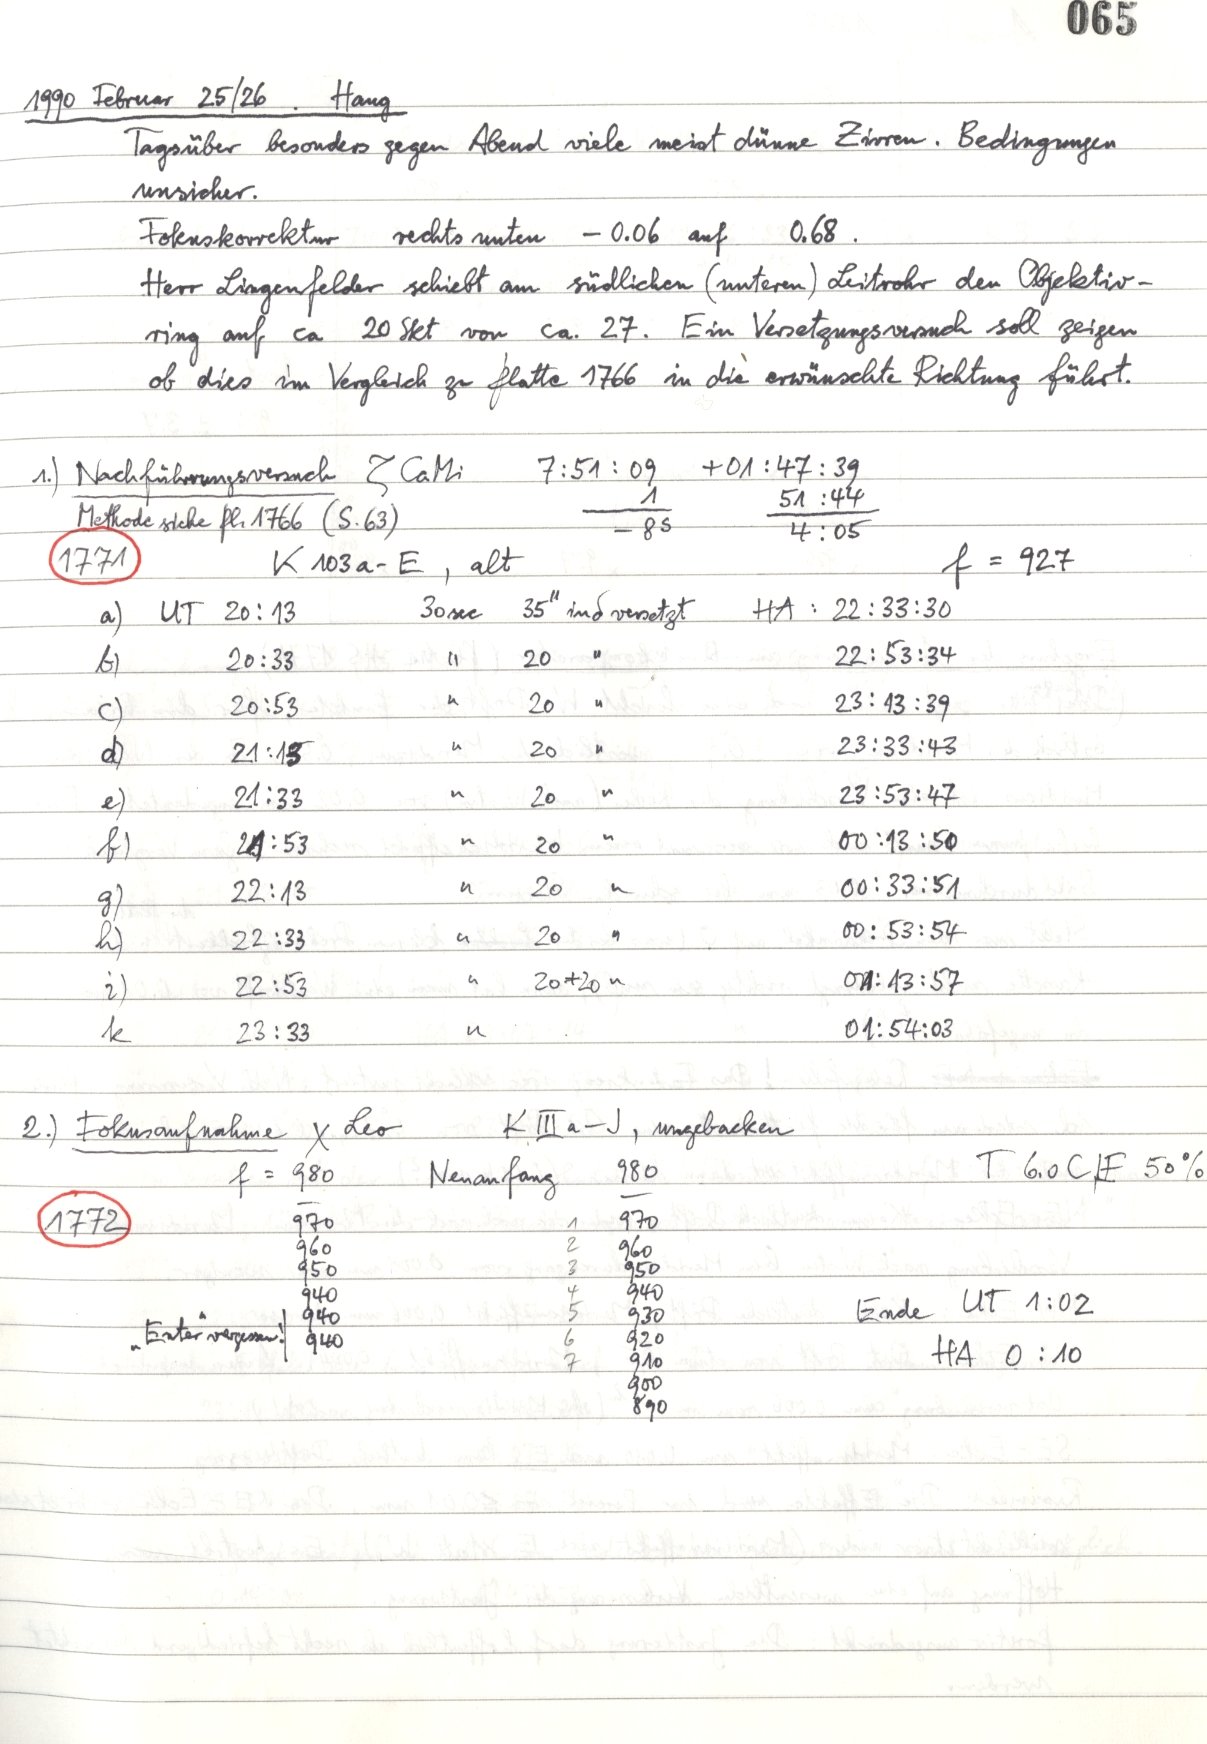 065
1990 Februar 25/26 . Haug
Tagsüber besonders gegen Abend viele meist dünne Zirren. Bedingungen
unsicher.
Fokuskorrektur rechts unten - 0.06 auf 0.68.
Herr Lingenfelder schiebt am südlichen (unteren) Leitrohr den Objektiv-
ring auf ca 20 Skt von ca. 27. Ein Versetzungsversuch soll zeigen
ob dies im Vergleich zu Platte 1766 in die erwünschte Richtung führt.
1.) Nachführungsversuch ζ CaMi 7:51:09 +01:47:39
1 51:44
Methode siehe Pl. 1766 (S.63) -8s 4:05
1771 K 103a-E, alt f = 927
a) UT 20:13 30sec 35" in δ versetzt HA : 22:33:30
b) 20:33 " 20 " 22:53:34
c) 20:53 " 20 " 23:13:39
d) 21:13 " 20 " 23:33:43
e) 21:33 " 20 " 23:53:47
f) 21:53 " 20 " 00:13:50
g) 22:13 " 20 " 00:33:51
h) 22:33 " 20 " 00:53:54
i) 22:53 " 20+20 " 01:13:57
k 23:33 " 01:54:03
2.) Fokusaufnahme χ Leo K III a-J, ungebacken
f = 980 Neuanfang 980 T 6.0 C, F 50%
1772 970 1 970
960 2 960
950 3 950
940 4 940
940 5 930 Ende UT 1:02
„Enter" vergessen! 940 6 920
7 910 HA 0:10
900
890